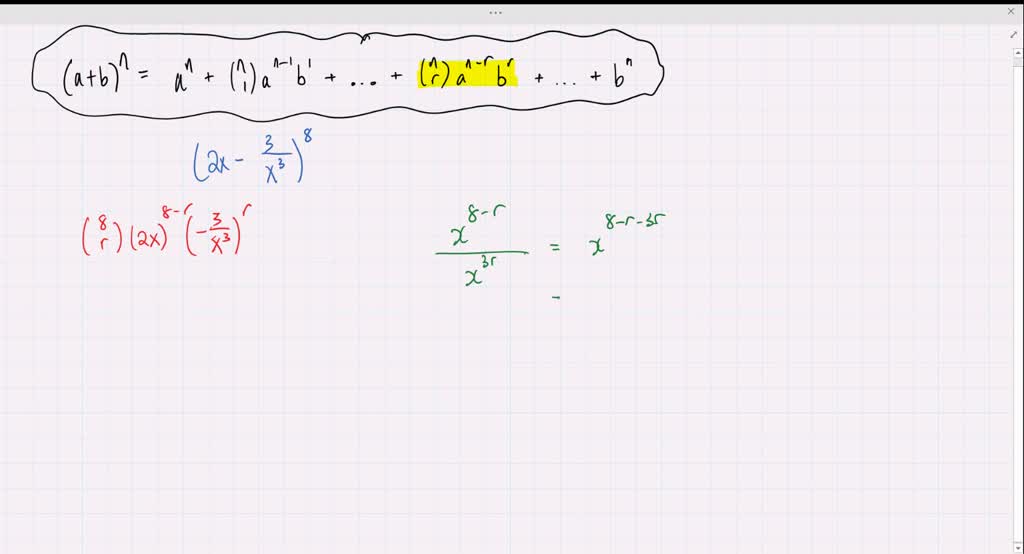 (a+b)ⁿ = aⁿ + (ⁿ₁) aⁿ⁻¹ b¹ + ... + (ⁿᵣ) aⁿ⁻ʳ bʳ + ... + bⁿ
(2x - 3/x³)⁸
(⁸ᵣ) (2x)⁸⁻ʳ (-3/x³)ʳ
x⁸⁻ʳ/x³ʳ = x⁸⁻ʳ⁻³ʳ
-